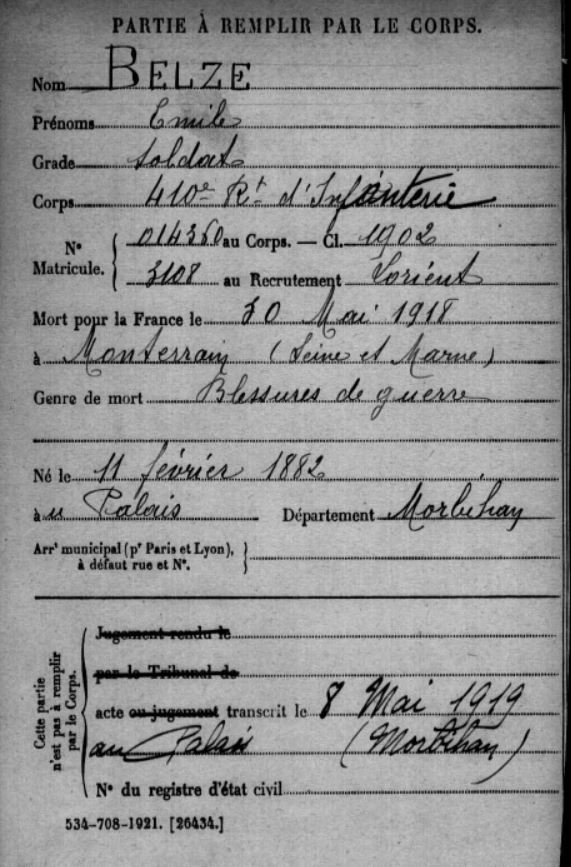 PARTIE À REMPLIR PAR LE CORPS.
Nom BELZE
Prénoms Emile
Grade Soldat
Corps 410e Rt d'Infanterie
N° Matricule. 014360 au Corps. — Cl. 1902
3108 au Recrutement Lorient
Mort pour la France le 30 Mai 1918
à Monterrain (Seine et Marne)
Genre de mort Blessures de guerre
Né le 11 février 1882
au Palais Département Morbihan
Arrt municipal (pr Paris et Lyon),
à défaut rue et N°.
Cette partie
n'est pas à remplir
par le Corps.
Jugement rendu le
par le Tribunal de
acte ou jugement transcrit le 8 Mai 1919
au Palais (Morbihan)
N° du registre d'état civil
534-708-1921. [26434.]